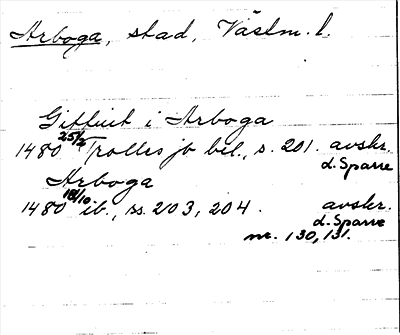 Arboga, stad, Västm. l.
Giftiut i Arboga
1480 25/2 Trolles jb bil., s. 201. avskr.
d. Sparre
Arboga
1480 18/10 ib., ss. 203, 204. avskr.
d. Sparre
nr. 130, 131.